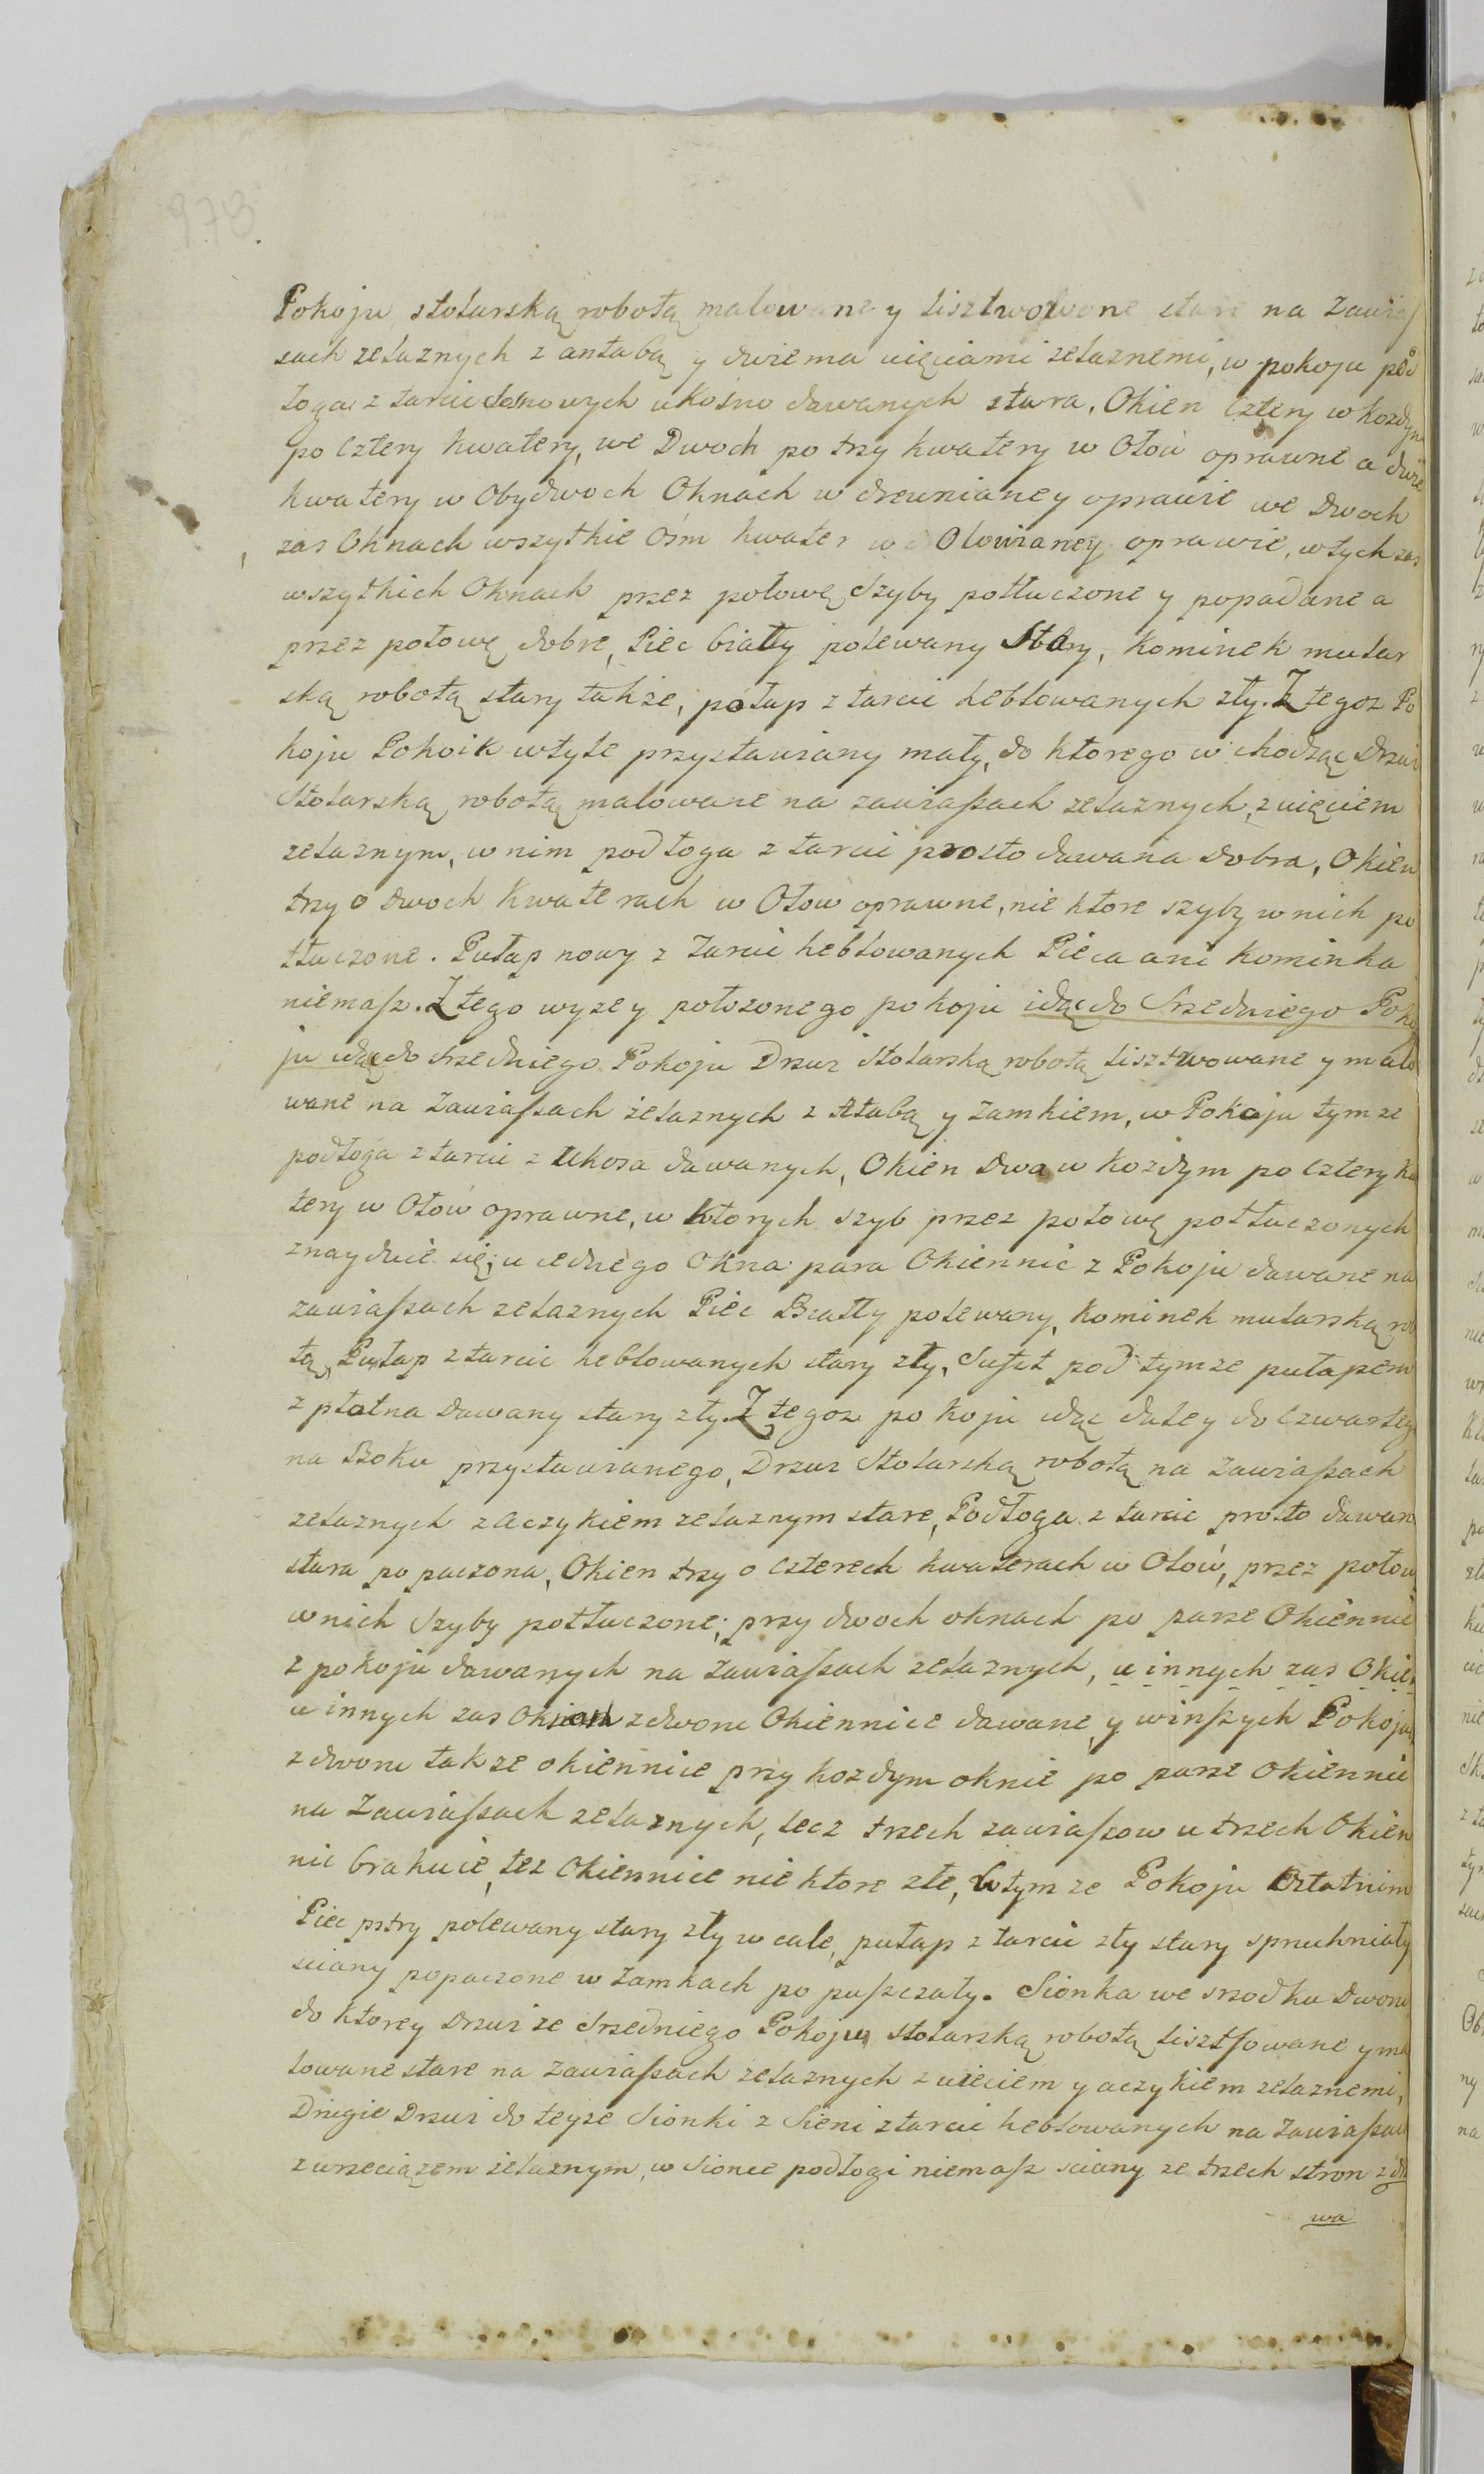 978.
Pokoju stolarską robotą malowane y lisztwowane stare na Zawias
sach zelaznych z antabą y dwiema ucięciami zelaznemi, w pokoju pod
łoga z tarcic ukośno dawanych stara, Okien cztery w kozdym
po cztery kwatery, we Dwoch po trzy kwatery w Ołów oprawne a dwie
kwatery w Obydwoch Oknach w drewnianey oprawie we Dwoch
zas Oknach wszytkie Ośm kwater w Ołowianey oprawie, w tych zas
wszytkich Oknach przez połowę Szyby potłuczone y popadane a
przez połowę dobre, Piec biały polewany Stary, kominek mular
ską robotą stary także, połap z tarcic heblowanych zły. Z tegoz Po
koju Pokoik w tyle przystawiany mały, do ktorego w chodząc Drzwi
Stolarską robotą malowane na zawiaſsach zelaznych, z ucięciem
zelaznym, w nim podłoga z tarcic prosto dawana dobra, Okien
trzy o dwoch kwaterach w Ołow oprawne, nie ktore szyby w nich po
tłuczone. Pułap nowy z Tarcic heblowanych Pieca ani kominka
niemaſz. Z tego wyzey położonego pokoju idąc do Srzedniego Poko
ju idąc do srzedniego Pokoju Drzwi Stolarską robotą lisztwowane y malo
wane na Zawiaſsach żelaznych z Atabą y Zamkiem, w Pokoju tymze
podłoga z tarcic z Ukosa dawanych, Okien Dwa w kozdym po cztery kwa
tery w Ołów oprawne, w ktorych szyb przez połowę potłuczonych
znayduie się; u iednego Okna para Okiennic z Pokoju dawane na
zawiaſsach zelaznych Piec Biały polewany, kominek mularską robo
tą, Pułap z tarcic heblowanych stary zły, Sufit pod tymze pułapem
z płotna Dawany stary zły. Z tegoz pokoju idąc daley do czwartego
na Boku przystawianego, Drzwi Stolarską robotą na Zawiaſsach
zelaznych z aczykiem zelaznym stare, Podłoga z tarcic prosto dawana
stara popaczona, Okien trzy o czterech kwaterach w Ołów, przez połowę
w nich Szyby potłuczone; przy dwoch oknach po parze Okiennic
z pokoju dawanych na Zawiaſsach zelaznych, u innych zas Okien
u innych zas Oknach z dworu Okiennice dawane, y w inſzych Pokojach
z dworu takze okiennice przy kozdym oknie po parze Okiennic
na Zawiaſsach zelaznych, lecz trzech zawiaſsow u trzech Okien
nic brakuie, tez Okiennice nie ktore złe, W tymze Pokoju Ostatnim
Piec pstry polewany stary zły w cale, pułap z tarcic zły stary spruchniały
sciany popaczone w Zamkach po puſzczały. Sionka we srzodku Dworu
do ktorey Drzwi ze Srzedniego Pokoju stolarską robotą lisztſowane y ma
lowane stare na Zawiaſsach zelaznych z ucieciem y aczykiem zelaznemi,
Drugie Drzwi do teyze Sionki z Sieni z tarcic heblowanych na Zawiaſsach
z wrzeciązem żelaznym, w Sionce podłogi niemaſz sciany ze trzech stron z drze
wa